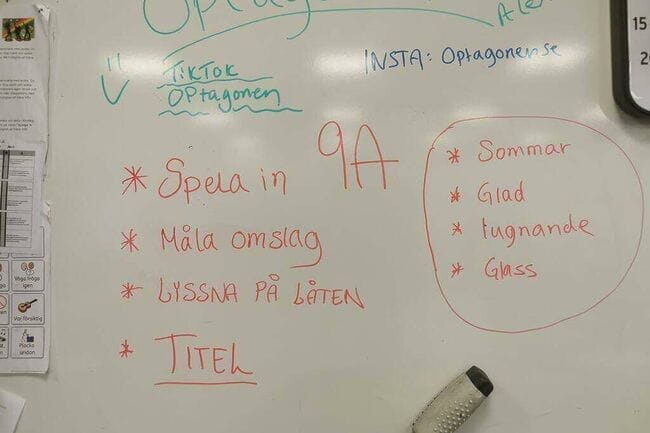 INSTA: Optagonense
TIKTOK
OPtagonen
9A
* Spela in
* Måla omslag
* LYSSNA PÅ LÅTEN
* TITEL
* Sommar
* Glad
* Lugnande
* Glass
Våga fråga
igen
Var försiktig
Plocka
undan
15